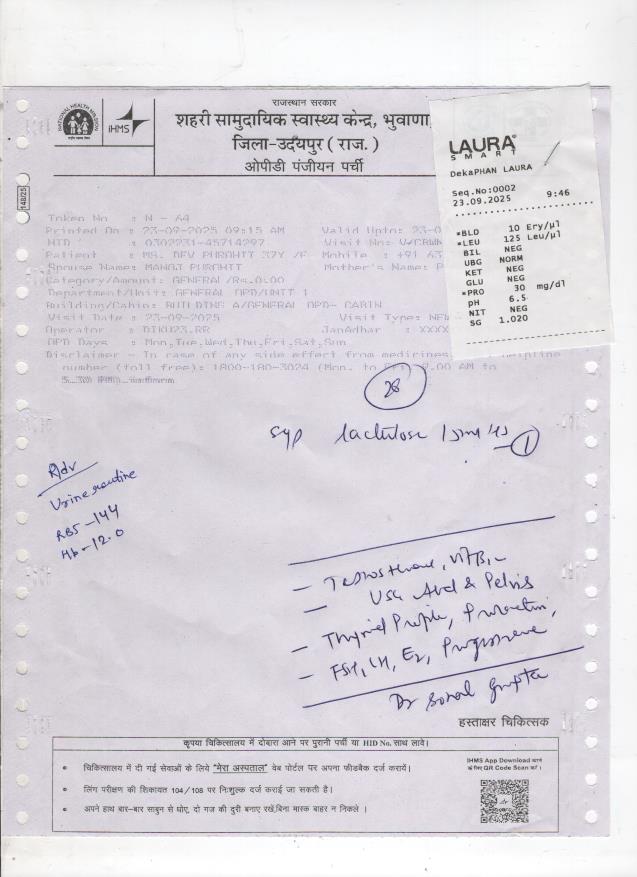 राजस्थान सरकार
NATIONAL HEALTH MISSION
iHMS
शहरी सामुदायिक स्वास्थ्य केन्द्र, भुवाणा,
जिला-उदयपुर ( राज. )
ओपीडी पंजीयन पर्ची
148/25
LAURA
SMART
DekaPHAN LAURA
Seq.No:0002
23.09.2025 9:46
*BLD 10 Ery/µl
*LEU 125 Leu/µl
BIL NEG
UBG NORM
KET NEG
GLU NEG
*PRO 30 mg/dl
pH 6.5
NIT NEG
SG 1.020
Token No : N - 64
Printed On : 23-09-2025 09:15 AM Valid Upto: 23-0
HID : 0302231-45714297 Visit No:
Patient : MS. DEV PUROHIT 37Y /F Mobile : +91 63
Spouse Name: MANOJ PUROHIT Mother's Name: P
Category/Amount: GENERAL /Rs.0.00
Department/Unit: GENERAL OPD/UNIT 1
Building/Cabin: BUILDING A/GENERAL OPD- CABIN
Visit Date : 23-09-2025 Visit Type: NEW
Operator : DIKU23.RR JanAdhar : XXXX
OPD Days : Mon,Tue,Wed,Thu,Fri,Sat,Sun
Disclaimer - In case of any side effect from medicines, helpline
number (toll free): 1800-180-3024 (Mon. to Fri) 9.00 AM to
28
Syp lactulose 15ml HS 1
Adv
Urine routine
RBS - 144
Hb - 12.0
- Testosterone,
- USG Abd & Pelvis
- Thyroid Profile, Prolactin,
- FSH, LH, E2, Progesterone
Dr Sonal Gupta
हस्ताक्षर चिकित्सक
कृपया चिकित्सालय में दोबारा आने पर पुरानी पर्ची या HID No. साथ लावें।
• चिकित्सालय में दी गई सेवाओं के लिये "मेरा अस्पताल" वेब पोर्टल पर अपना फीडबैक दर्ज करायें।
• लिंग परीक्षण की शिकायत 104/108 पर निःशुल्क दर्ज कराई जा सकती है।
• अपने हाथ बार-बार साबुन से धोए, दो गज की दुरी बनाए रखें,बिना मास्क बाहर न निकले ।
IHMS App Download करने
के लिए QR Code Scan करें।